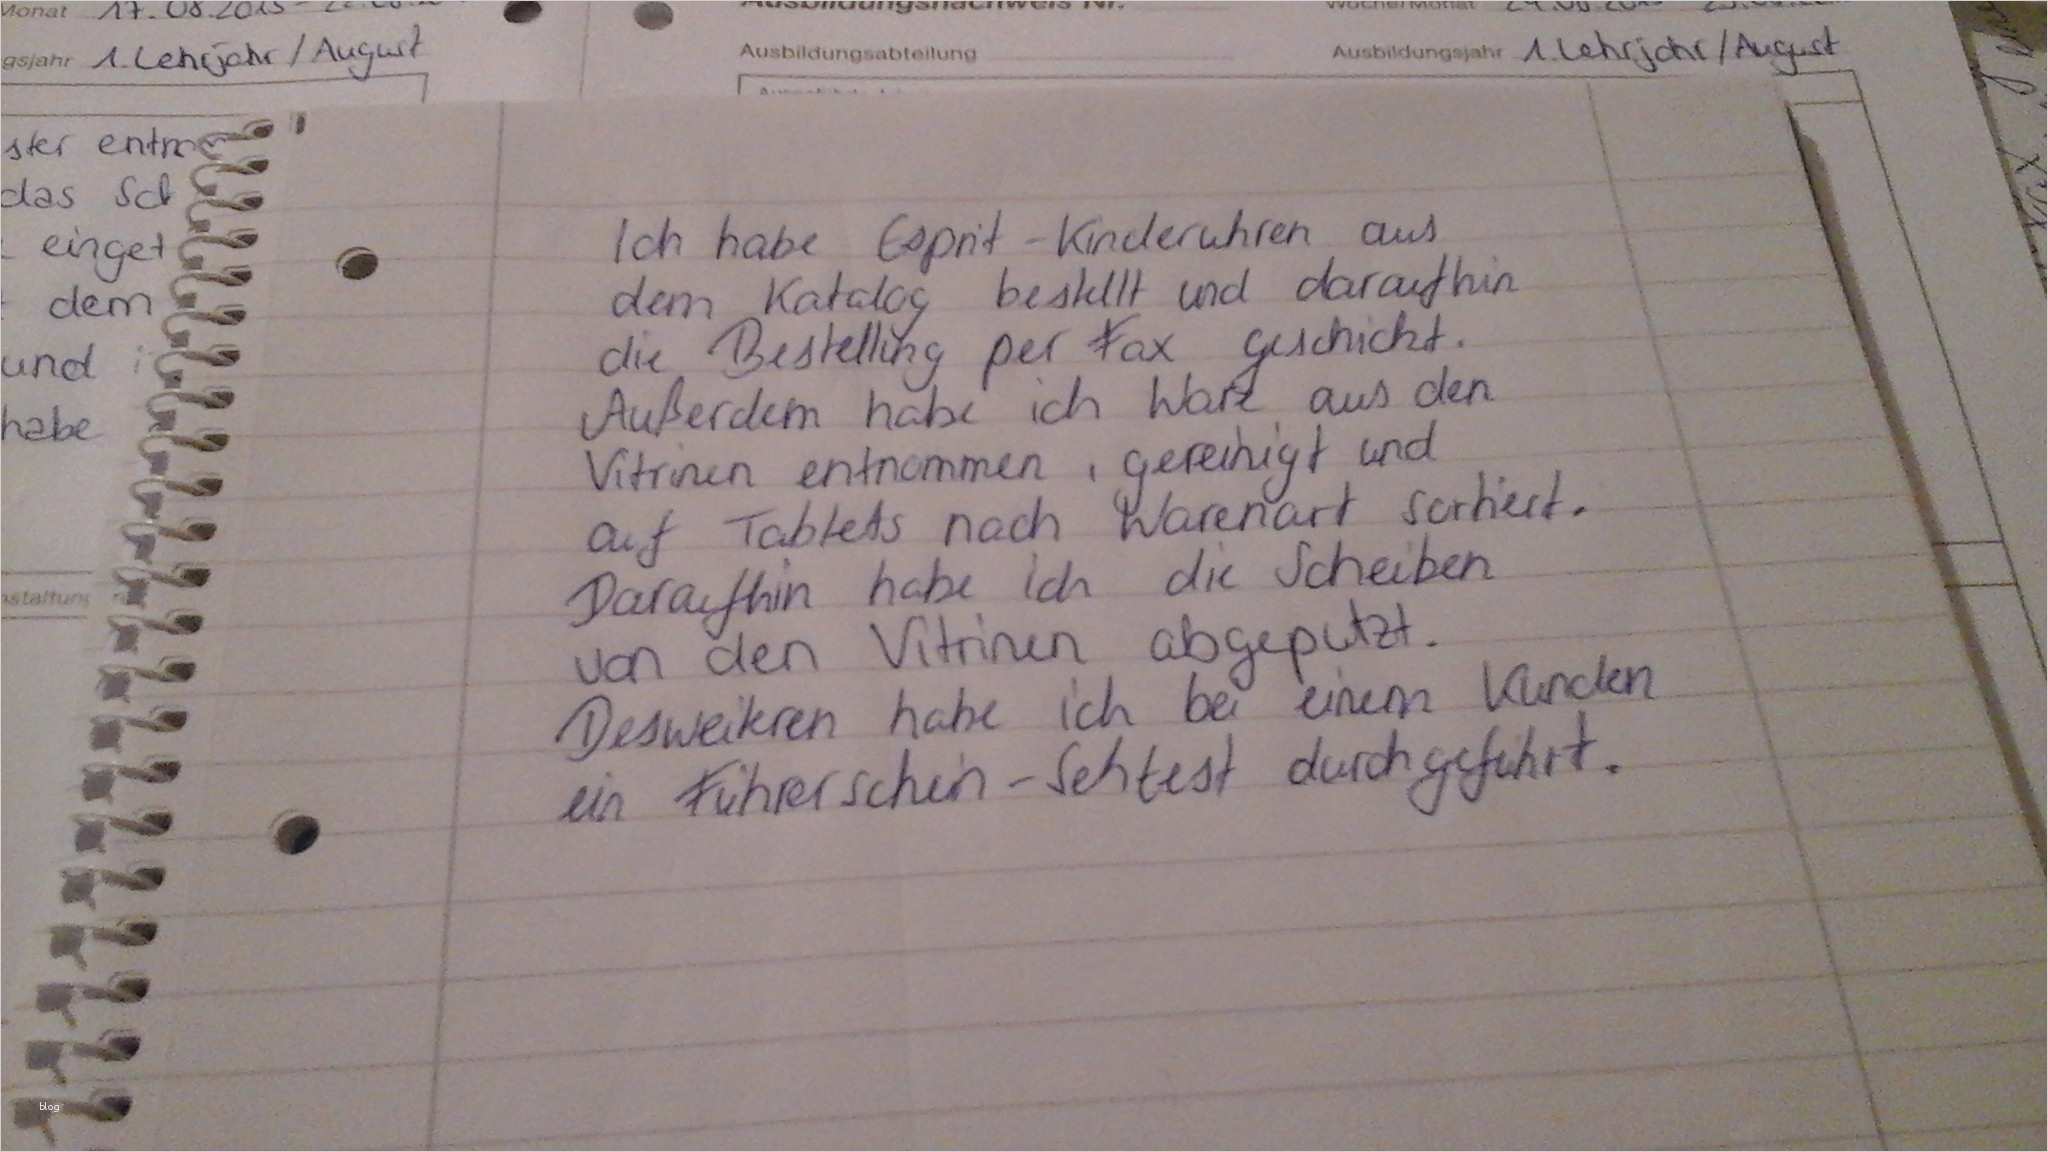 Monat 17.08.2015 -
Ausbildungsnachweis Nr.
gsjahr 1. Lehrjahr / August
Ausbildungsabteilung
Ausbildungsjahr 1. Lehrjahr / August
ster
das
einget
dem
und
habe
Ich habe Esprit - Kinderuhren aus
dem Katalog bestellt und daraufhin
die Bestellung per Fax geschickt.
Außerdem habe ich Ware aus den
Vitrinen entnommen, gereinigt und
auf Tabletts nach Warenart sortiert.
Daraufhin habe ich die Scheiben
von den Vitrinen abgeputzt.
Desweiteren habe ich bei einem Kunden
ein Führerschein - Sehtest durchgeführt.
blog